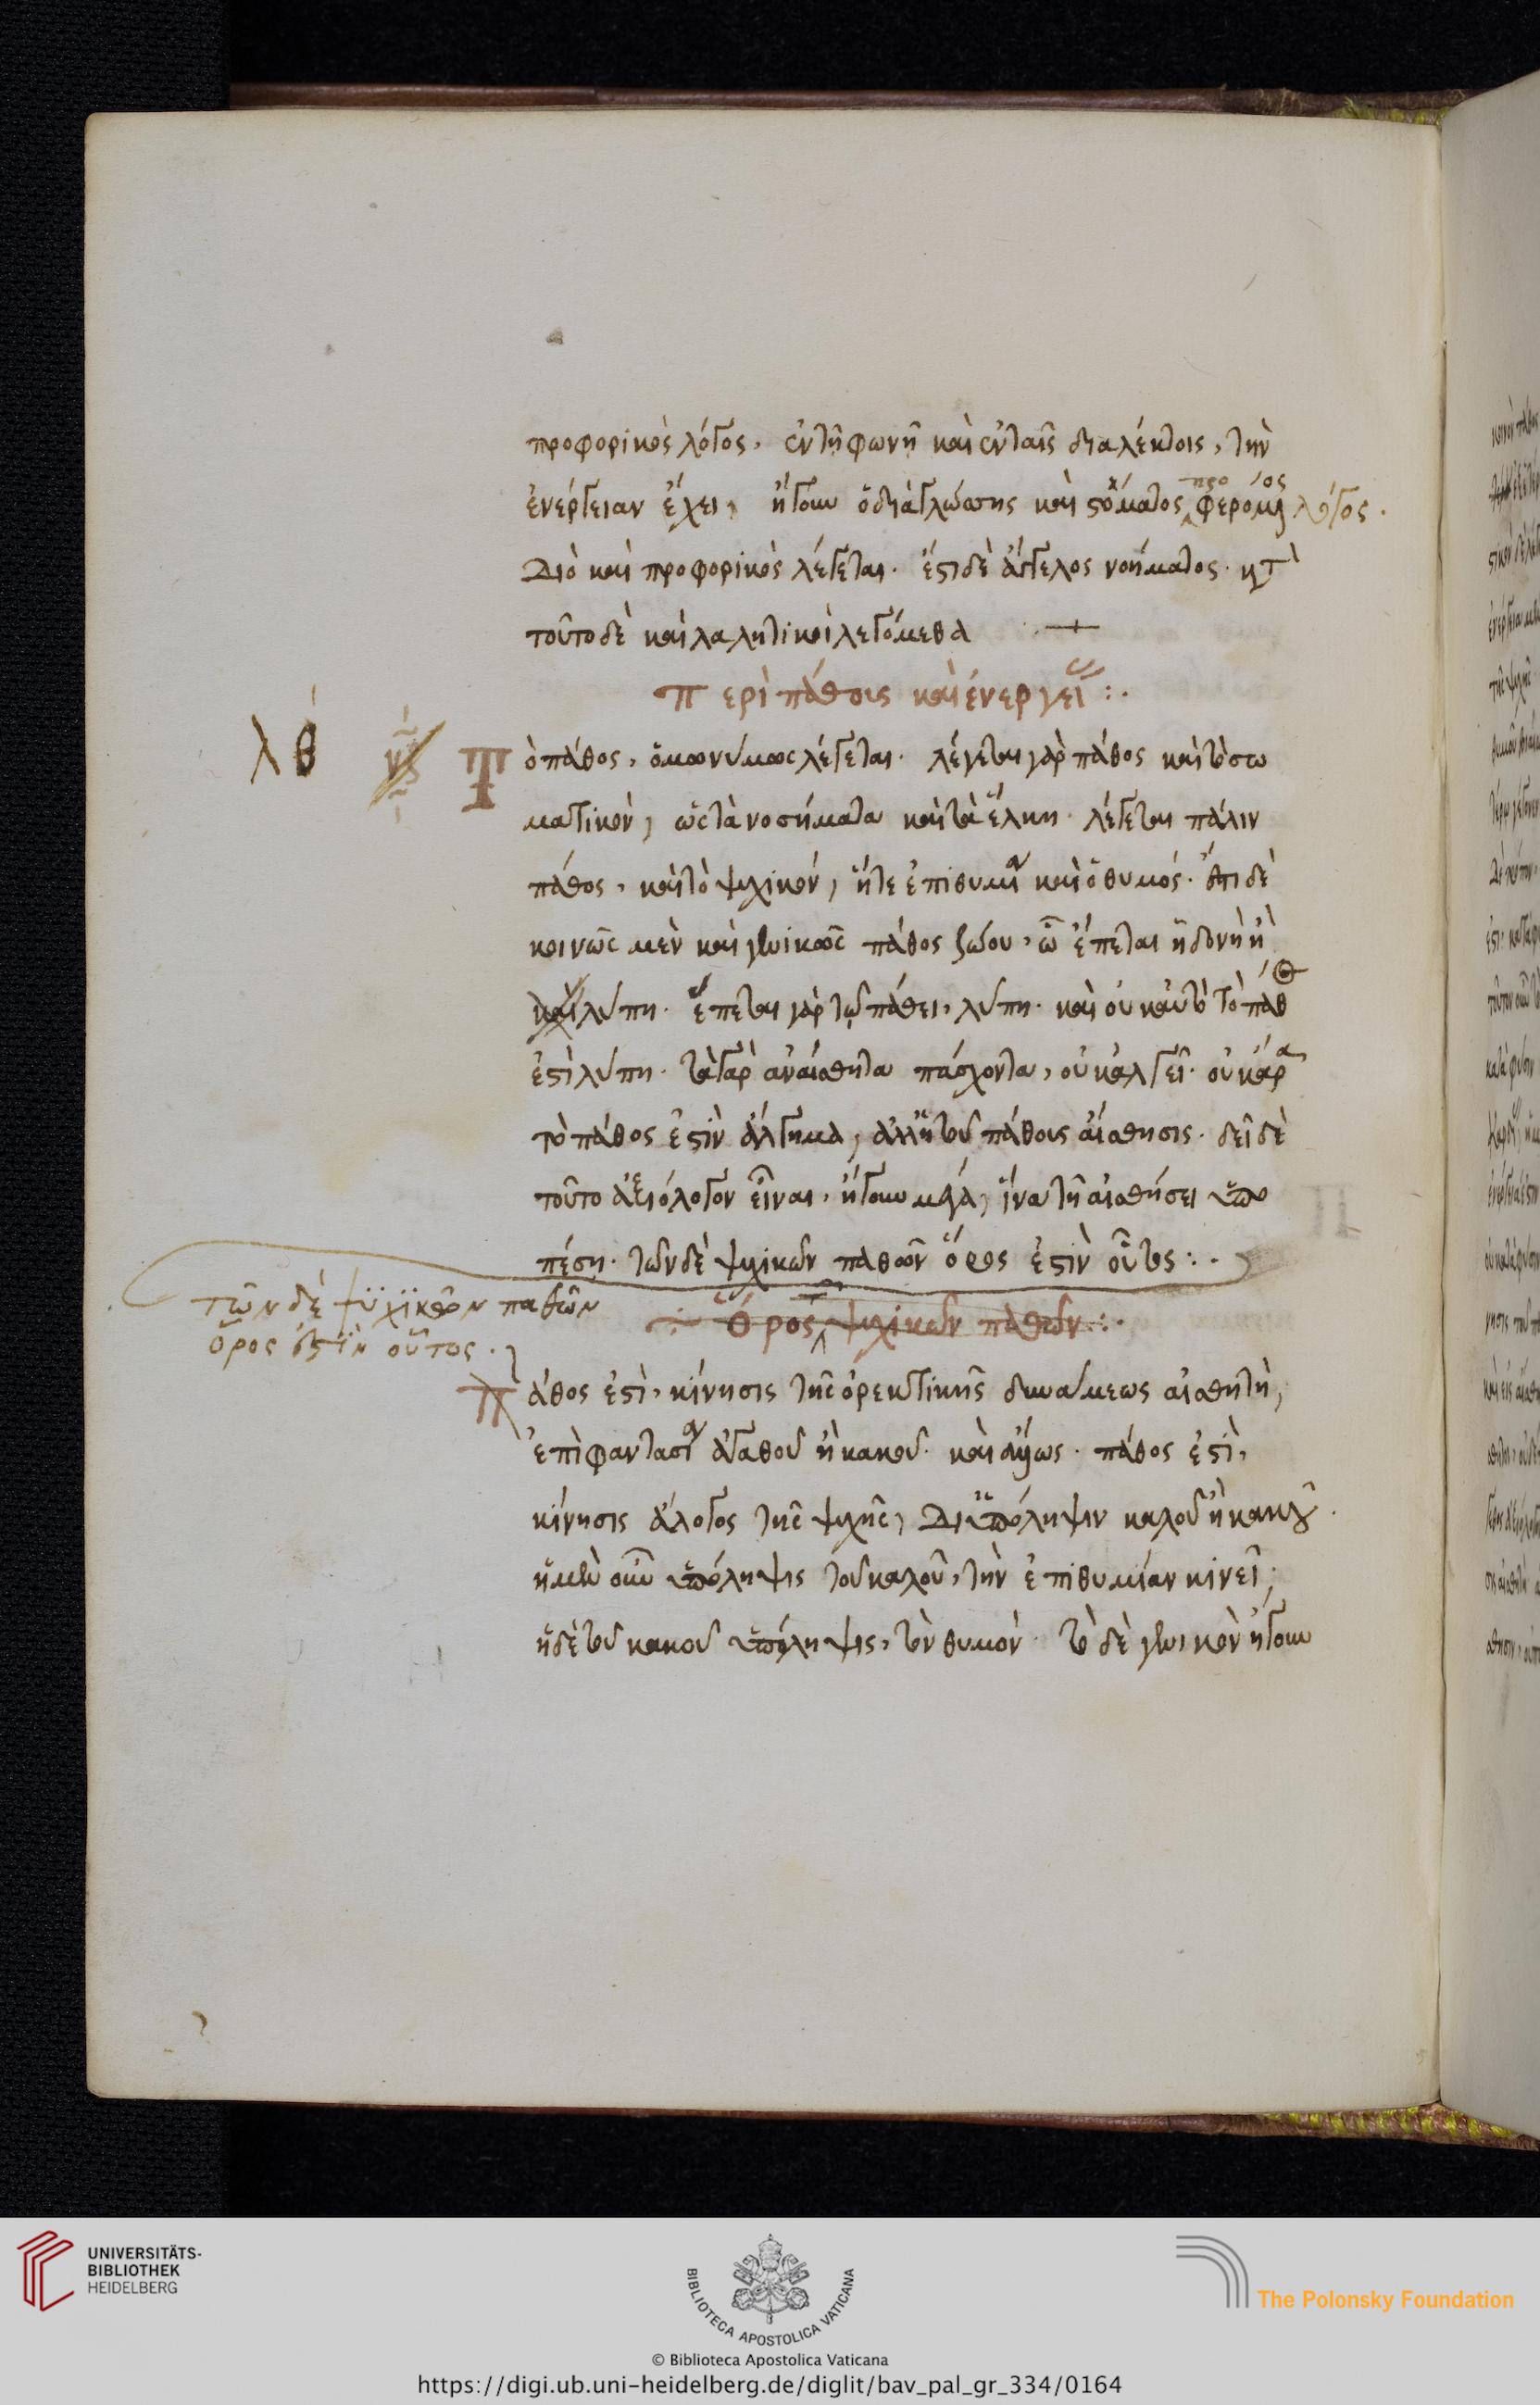 προφορικὸς λόγος, ἐν τῆ φωνῆ καὶ ἐν ταῖς διαλέκτοις, τὴν
ἐνέργειαν ἔχει, ἤγουν ὁ διὰ γλώσσης καὶ στόματος προφερόμενος λόγος.
Διὸ καὶ προφορικὸς λέγεται. ἔστι δὲ ἄγγελος νοήματος. κατὰ
τοῦτο δὲ καὶ λαλητικοὶ λεγόμεθα
Περὶ πάθους καὶ ἐνεργείας :.
λθ
Τὸ πάθος, ὁμωνύμως λέγεται. λέγεται γὰρ πάθος καὶ τὸ σω
ματικὸν, ὡς τὰ νοσήματα καὶ τὰ ἕλκη. λέγεται πάλιν
πάθος, καὶ τὸ ψυχικόν, ἥτε ἐπιθυμία καὶ ὁ θυμός. ἔστι δὲ
κοινῶς μὲν καὶ γενικῶς πάθος ζώου, ὧ ἕπεται ἡδονὴ ἢ
καὶ λύπη. ἕπεται γὰρ τῷ πάθει, λύπη. καὶ οὐκ αὐτὸ τὸ πάθος
ἐστὶ λύπη. τὰ γὰρ ἀναίσθητα πάσχοντα, οὐκ ἀλγεῖ. οὐκ ἄρα
τὸ πάθος ἐστὶν ἄλγημα, ἀλλ' ἡ τοῦ πάθους αἴσθησις. δεῖ δὲ
τοῦτο ἀξιόλογον εἶναι, ἤγουν μέγα, ἵνα τῆ αἰσθήσει ὑπο
πέση. τῶν δὲ ψυχικῶν παθῶν ὅρος ἐστὶν οὗτος :.
τῶν δὲ ψυχικῶν παθῶν
ὅρος ἐστὶν οὗτος.
Ὅρος ψυχικῶν παθῶν :.
Πάθος ἐστὶ, κίνησις τῆς ὀρεκτικῆς δυνάμεως αἰσθητὴ,
ἐπὶ φαντασία ἀγαθοῦ ἢ κακοῦ. καὶ ἄλλως. πάθος ἐστὶ,
κίνησις ἄλογος τῆς ψυχῆς, Δι' ὑπόληψιν καλοῦ ἢ κακοῦ.
ἡ μὲν οὖν ὑπόληψις τοῦ καλοῦ, τὴν ἐπιθυμίαν κινεῖ,
ἡ δὲ τοῦ κακοῦ ὑπόληψις, τὸν θυμόν. τὸ δὲ γενικὸν ἤγουν
UNIVERSITÄTS-
BIBLIOTHEK
HEIDELBERG
BIBLIOTECA APOSTOLICA VATICANA
The Polonsky Foundation
© Biblioteca Apostolica Vaticana
https://digi.ub.uni-heidelberg.de/diglit/bav_pal_gr_334/0164